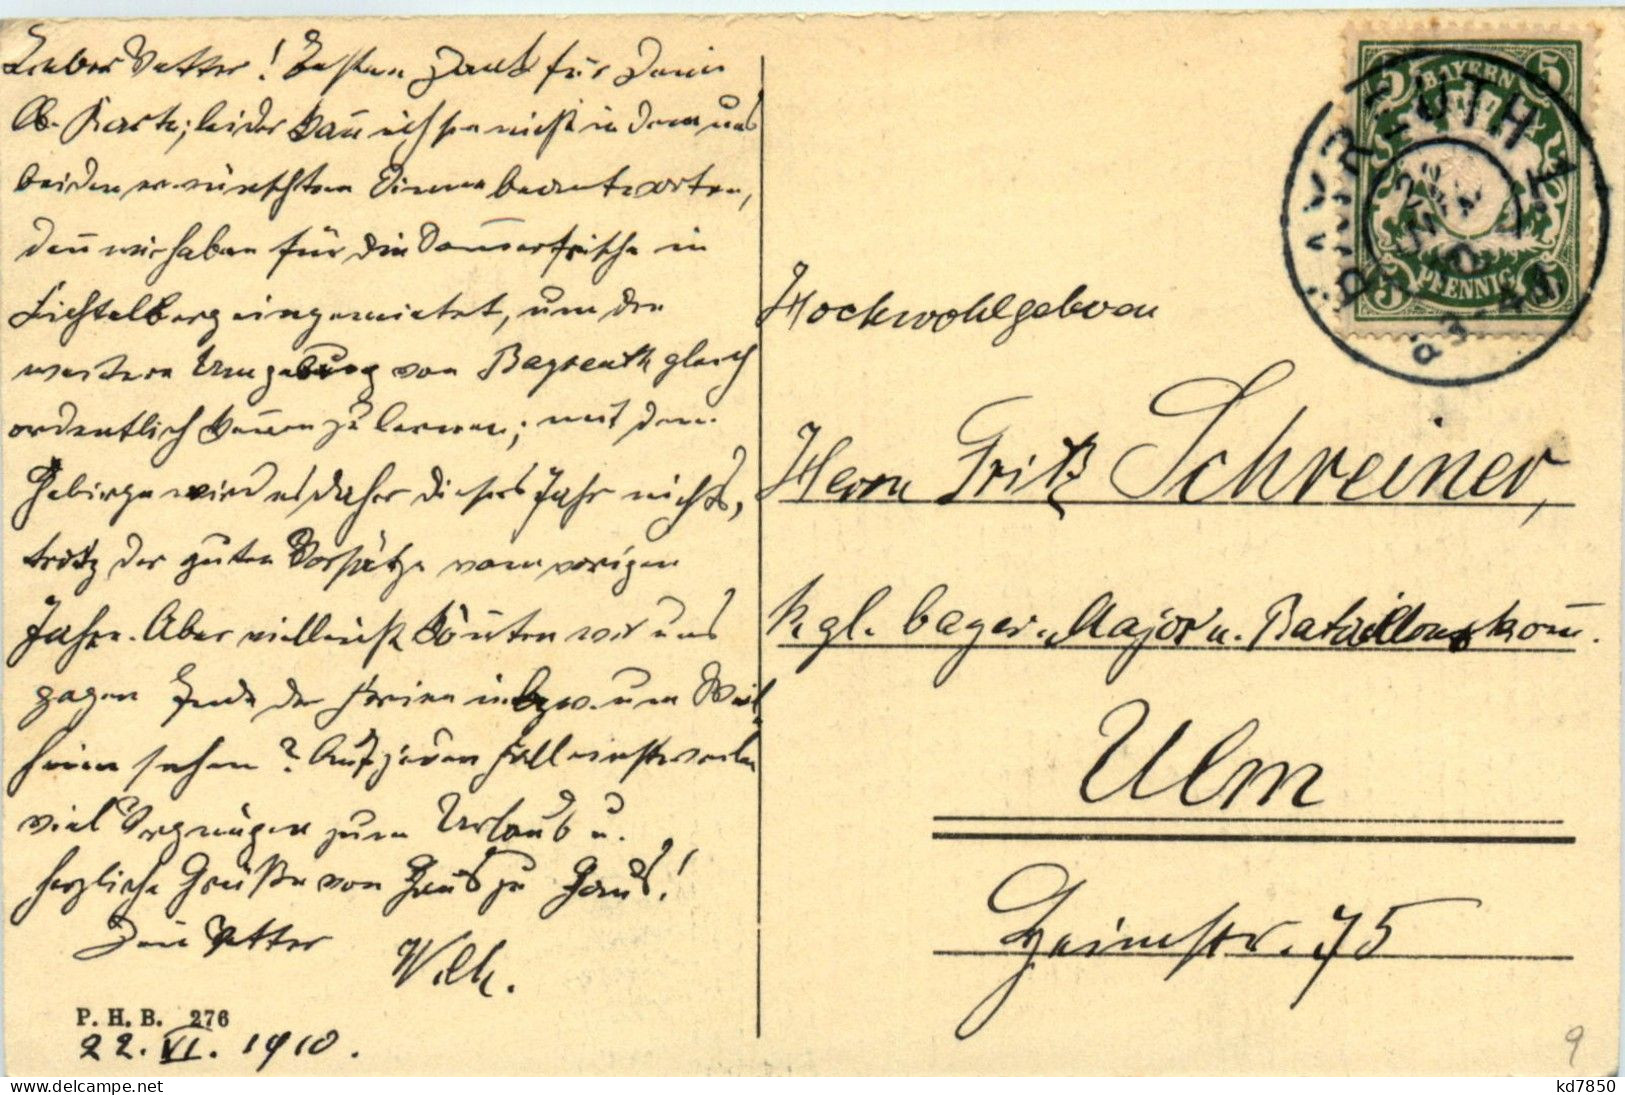 Lieber Vetter! Besten Dank für Deine
Ob. Karte; leider kann ich sie nicht in dem uns
beiden erwünschten Sinne beantworten,
denn wir haben für die Sommerfrische in
Fichtelberg eingemietet, um die
weitere Umgebung von Bayreuth gleich
ordentlich kennen zu lernen; mit dem
Gebirge wird es daher dieses Jahr nichts,
trotz der guten Vorsätze vom vorigen
Jahre. Aber vielleicht könnten wir uns
gegen Ende der Ferien in bzw. um Weil-
heim sehen? Auf jeden Fall einstweilen
viel Vergnügen zum Urlaub u.
herzliche Grüße von Haus zu Haus!
Dein Vetter
Wilh.
P. H. B. 276
22. VI. 1910.
BAYERN
5 5
5 PFENNIG 5
BAYREUTH 1
Hochwohlgeboren
Herrn Fritz Schreiner,
kgl. bayer. Major u. Bataillonskom̅.
Ulm
Heimstr. 75
9
kd7850